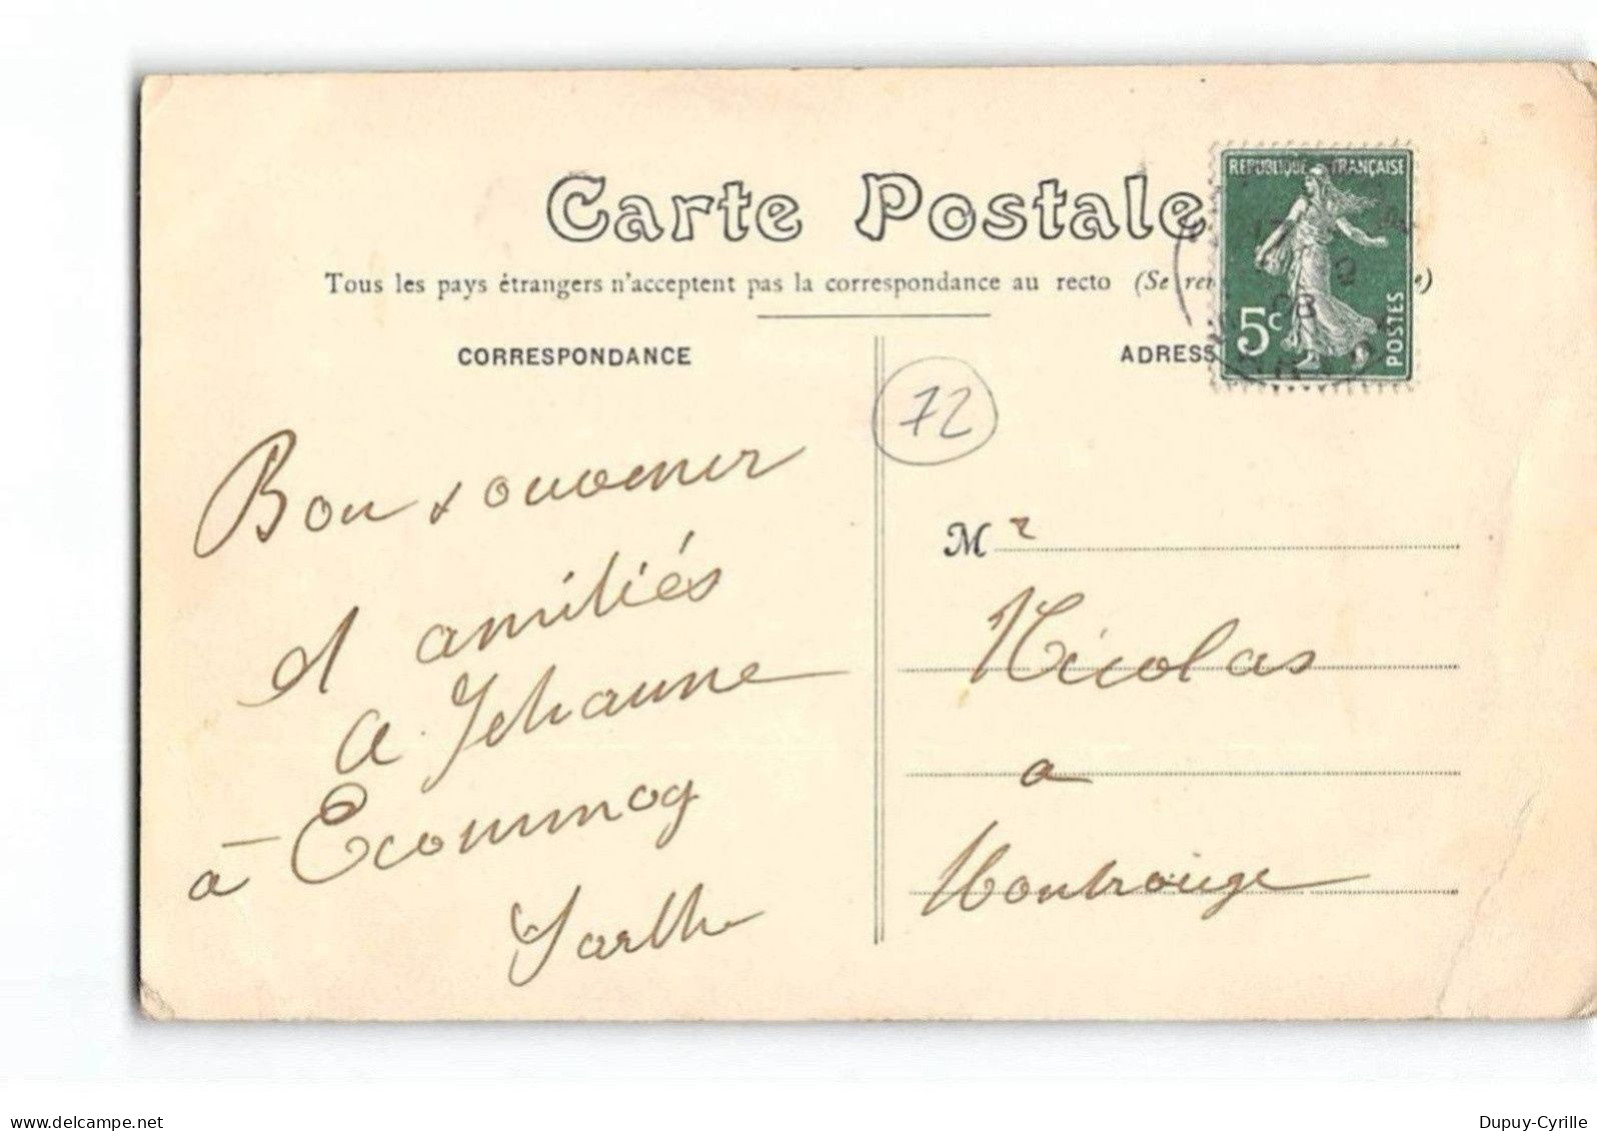 Carte Postale
Tous les pays étrangers n'acceptent pas la correspondance au recto (Se
CORRESPONDANCE
ADRESS
REPUBLIQUE FRANÇAISE
5c
POSTES
72
Bon souvenir
et amitiés
a Jehanne
à Ecommoy
Sarthe
Mr
Nicolas
a
Montrouge
www.delcampe.net
Dupuy-Cyrille